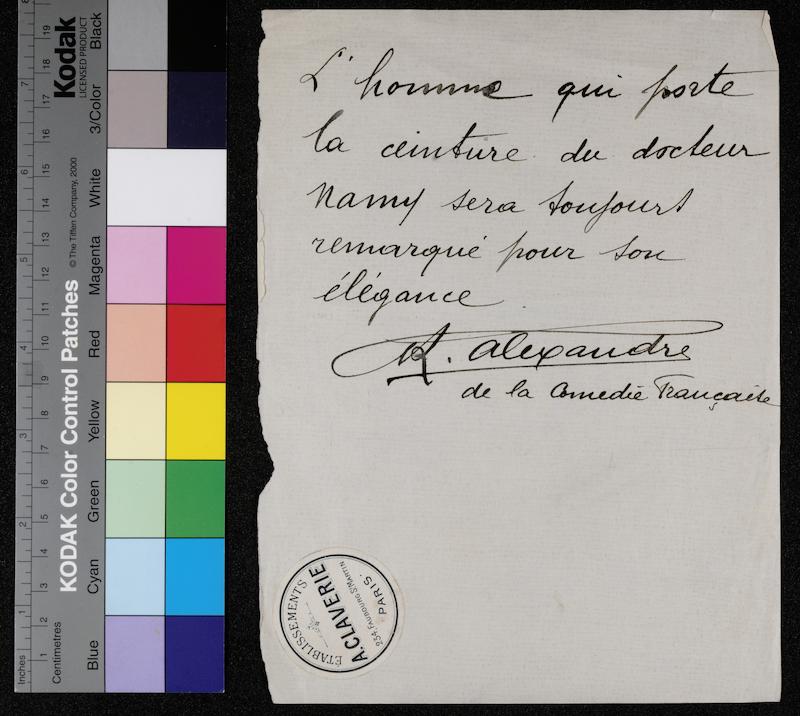 L'homme qui porte
la ceinture du docteur
Namy sera toujours
remarqué pour son
élégance.
R. Alexandre
de la Comedie Française
ÉTABLISSEMENTS
A. CLAVERIE
234, FAUBOURG ST MARTIN
PARIS
Kodak
LICENSED PRODUCT
KODAK Color Control Patches
© The Tiffen Company, 2000
Black
3/Color
White
Magenta
Red
Yellow
Green
Cyan
Blue
Inches
1
2
3
4
5
6
7
8
Centimetres
1
2
3
4
5
6
7
8
9
10
11
12
13
14
15
16
17
18
19